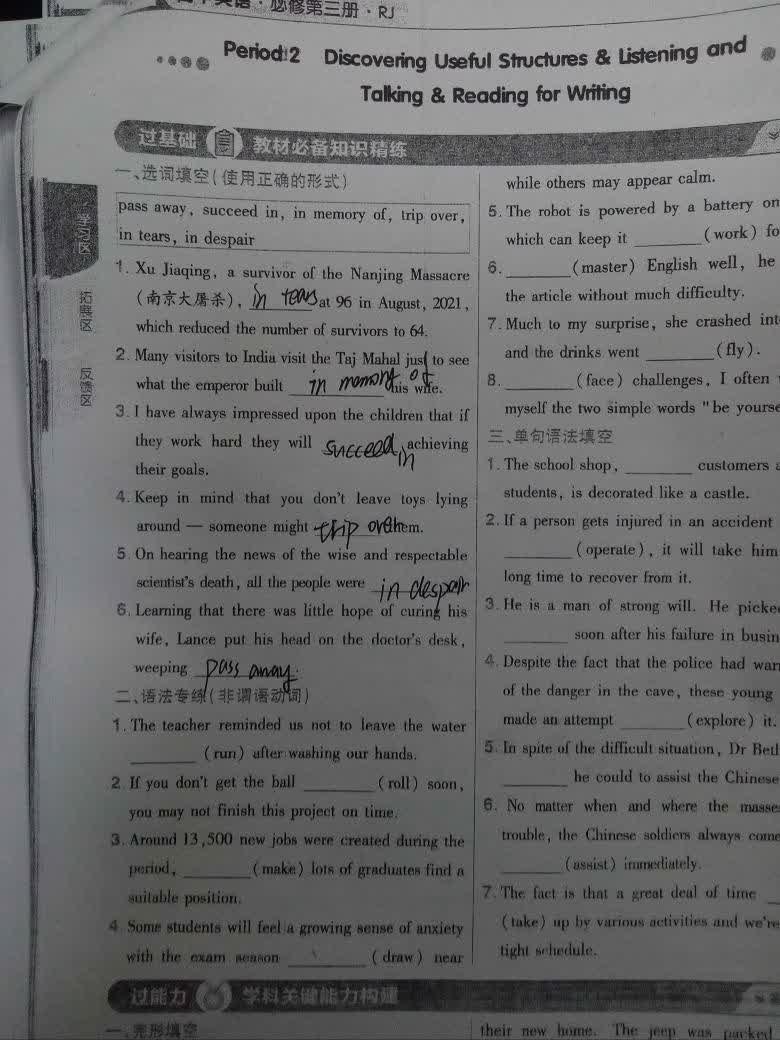 必修第三册·RJ
Period 2 Discovering Useful Structures & Listening and
Talking & Reading for Writing
过基础 教材必备知识精练
学习区
拓展区
反馈区
一、选词填空(使用正确的形式)
pass away, succeed in, in memory of, trip over,
in tears, in despair
1. Xu Jiaqing, a survivor of the Nanjing Massacre
(南京大屠杀), in tears at 96 in August, 2021,
which reduced the number of survivors to 64.
2. Many visitors to India visit the Taj Mahal just to see
what the emperor built in memory of his wife.
3. I have always impressed upon the children that if
they work hard they will succeed in achieving
their goals.
4. Keep in mind that you don't leave toys lying
around — someone might trip over them.
5. On hearing the news of the wise and respectable
scientist's death, all the people were in despair
6. Learning that there was little hope of curing his
wife, Lance put his head on the doctor's desk,
weeping pass away.
二、语法专练(非谓语动词)
1. The teacher reminded us not to leave the water
______ (run) after washing our hands.
2. If you don't get the ball ______ (roll) soon,
you may not finish this project on time.
3. Around 13,500 new jobs were created during the
period, ______ (make) lots of graduates find a
suitable position.
4 Some students will feel a growing sense of anxiety
with the exam season ______ (draw) near
while others may appear calm.
5. The robot is powered by a battery on
which can keep it ______ (work) fo
6. ______ (master) English well, he
the article without much difficulty.
7. Much to my surprise, she crashed int
and the drinks went ______ (fly).
8. ______ (face) challenges, I often
myself the two simple words "be yourse
三、单句语法填空
1. The school shop, ______ customers a
students, is decorated like a castle.
2. If a person gets injured in an accident
______ (operate), it will take him
long time to recover from it.
3. He is a man of strong will. He picke
______ soon after his failure in busin
4. Despite the fact that the police had war
of the danger in the cave, these young
made an attempt ______ (explore) it.
5. In spite of the difficult situation, Dr Bet
______ he could to assist the Chinese
6. No matter when and where the masse
trouble, the Chinese soldiers always come
______ (assist) immediately.
7. The fact is that a great deal of time __
(take) up by various activities and we're
tight schedule.
过能力 学科关键能力构建
一、完形填空
their new home. The jeep was packed